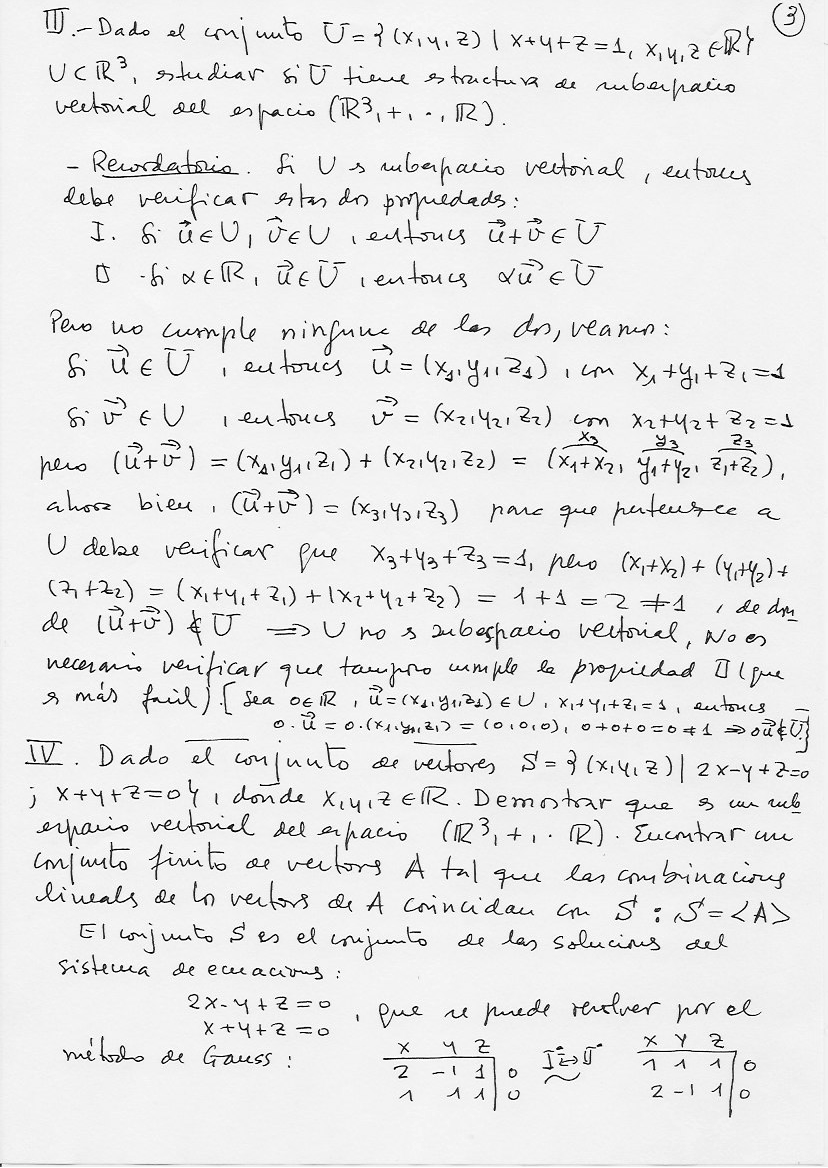 ③
III.- Dado el conjunto U = {(x,y,z) | x+y+z=1, x,y,z ∈ ℝ}
U⊂ℝ³, estudiar si U tiene estructura de subespacio
vectorial del espacio (ℝ³,+,·,ℝ).
- Recordatorio. Si U es subespacio vectorial, entonces
debe verificar estas dos propiedades:
I. Si u⃗∈U, v⃗∈U, entonces u⃗+v⃗∈U
II. Si α∈ℝ, u⃗∈U, entonces αu⃗∈U
Pero no cumple ninguna de las dos, veamos:
Si u⃗∈U, entonces u⃗=(x₁,y₁,z₁), con x₁+y₁+z₁=1
Si v⃗∈U, entonces v⃗=(x₂,y₂,z₂) con x₂+y₂+z₂=1
x₃ y₃ z₃
pero (u⃗+v⃗)=(x₁,y₁,z₁)+(x₂,y₂,z₂)=(x₁+x₂, y₁+y₂, z₁+z₂),
ahora bien, (u⃗+v⃗)=(x₃,y₃,z₃) para que pertenezca a
U debe verificar que x₃+y₃+z₃=1, pero (x₁+x₂)+(y₁+y₂)+
(z₁+z₂)=(x₁+y₁+z₁)+(x₂+y₂+z₂)=1+1=2≠1, de don
de (u⃗+v⃗)∉U ⟹ U no es subespacio vectorial, No es
necesario verificar que tampoco cumple la propiedad II (que
es más facil).[Sea 0∈ℝ, u⃗=(x₁,y₁,z₁)∈U, x₁+y₁+z₁=1, entonces
0·u⃗=0·(x₁,y₁,z₁)=(0,0,0), 0+0+0=0≠1 ⇒ 0u⃗∉U]
IV. Dado el conjunto de vectores S={(x,y,z)| 2x-y+z=0
; x+y+z=0}, donde x,y,z∈ℝ. Demostrar que es un sub
espacio vectorial del espacio (ℝ³,+,·ℝ). Encontrar un
conjunto finito de vectores A tal que las combinaciones
lineales de los vectores de A coincidan con S: S=<A>
El conjunto S es el conjunto de las soluciones del
sistema de ecuaciones:
2x-y+z=0
x+y+z=0 , que se puede resolver por el
método de Gauss: x y z I↔II x y z
2 -1 1 | 0 ~ 1 1 1 | 0
1 1 1 | 0 2 -1 1 | 0